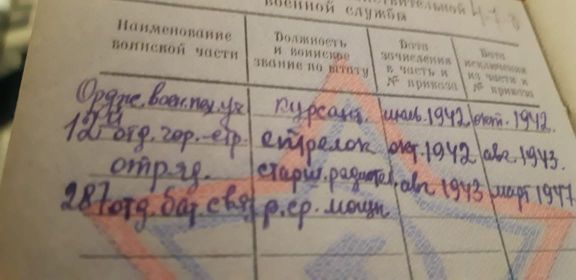 военной службы
Наименование воинской части
Должность и воинское звание по штату
Дата зачисления в часть и № приказа
Дата исключения из части и № приказа
Ордже. воен. пех. уч курсант. июль. 1942 окт. 1942.
12 отд. гор.-стр. стрелок окт. 1942 авг. 1943.
отряд. старш. радиотел. авг 1943 март 1947
287 отд. бат. свя р. ср. мощн